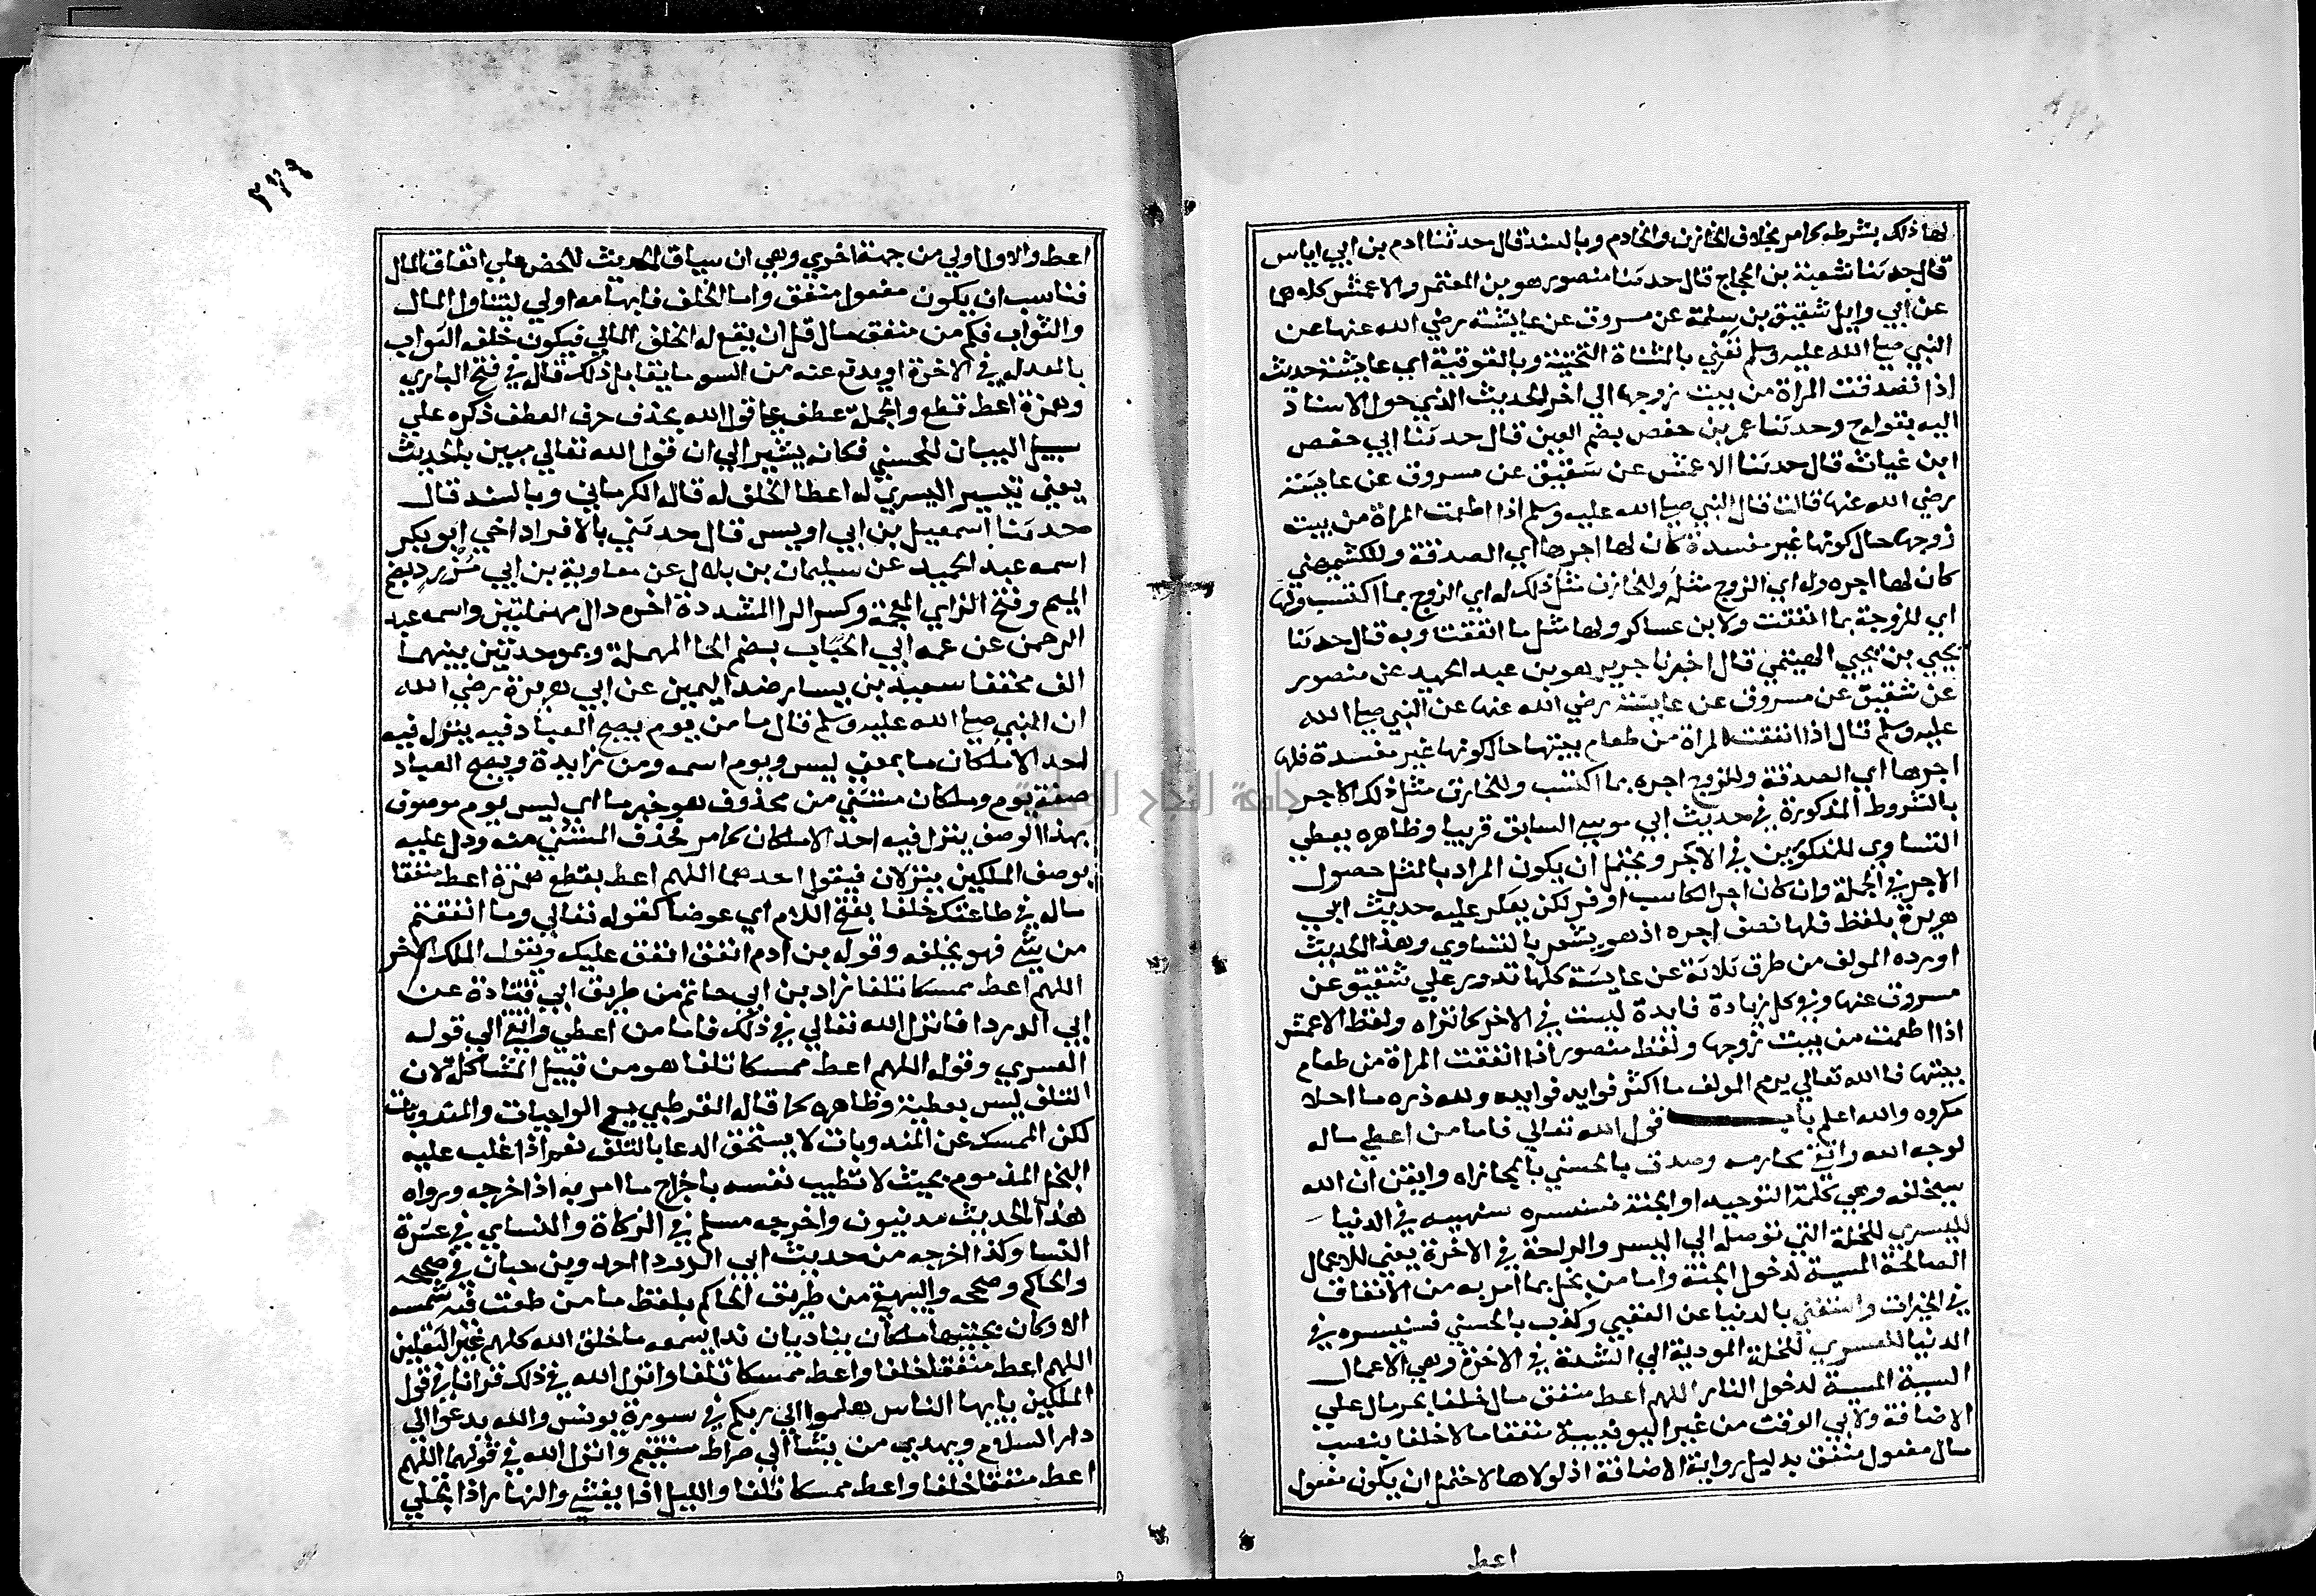 لها ذلك بشرطه كما مر بخلاف الخازن والخادم وبالسند قال حدثنا ادم بن ابي اياس
قال حدثنا شعبة بن الحجاج قال حدثنا منصور هو بن المعتمر والاعمش كلاهما
عن ابي وايل شقيق بن سلمة عن مسروق عن عايشة رضي الله عنها عن
النبي صلي الله عليه وسلم تعني بالمثناة التحتية وبالفوقية اي عايشة حديث
اذا تصدقت المراة من بيت زوجها الي اخر الحديث الذي حول الاسناد
اليه بقوله ح وحدثنا عمر بن حفص بضم العين قال حدثنا ابي حفص
ابن غياث قال حدثنا الاعمش عن شقيق عن مسروق عن عايشة
رضي الله عنها قالت قال النبي صلي الله عليه وسلم اذا اطعمت المراة من بيت
زوجها حال كونها غير مفسدة كان لها اجرها اي الصدقة وللكشميهني
كان لها اجره وله اي الزوج مثله وللخازن مثل ذلك له اي الزوج بما اكتسب ولها
اي للزوجة بما انفقت ولابن عساكر ولها مثل ما انفقت وبه قال حدثنا
يحيي بن يحيي التميمي قال اخبرنا جرير هو بن عبد الحميد عن منصور
عن شقيق عن مسروق عن عايشة رضي الله عنها عن النبي صلي الله
عليه وسلم قال اذا انفقت المراة من طعام بيتها حال كونها غير مفسدة فلها
اجرها اي الصدقة وللزوج اجره بما اكتسب وللخازن مثل ذلك الاجر
بالشروط المذكورة في حديث ابي موسي السابق قريبا وظاهره يعطي
التساوي للمذكورين في الاجر ويحتمل ان يكون المراد بالمثل حصول
الاجر في الجملة وان كان اجر الكاسب اوفر لكن يعكر عليه حديث ابي
هريرة بلفظ فلها نصف اجره اذ هو يشعر بالتساوي وهذا الحديث
اورده المولف من طرق ثلاثة عن عايشة كلها تدور علي شقيق عن
مسروق عنها وفي كل زيادة فايدة ليست في الاخر كما تراه ولفظ الاعمش
اذا اطعمت من بيت زوجها ولفظ منصور اذا انفقت المراة من طعام
بيتها فالله تعالي يرحم المولف ما اكثر فوايد فوايده ولله دره ما احلا
مكروه والله اعلم باب قول الله تعالي فاما من اعطي ماله
لوجه الله واتقي محارمه وصدق بالحسني بالمجازاه وايقن ان الله
سيخلفه وهي كلمة التوحيد او الجنة فسنيسره سنهيبه في الدنيا
لليسري للخلة التي توصله الي اليسر والراحة في الاخرة يعني للاعمال
الصالحة المسببة لدخول الجنة واما من بخل بما امر به من الانفاق
في الخيرات واستغني بالدنيا عن العقبي وكذب بالحسني فسنيسره في
الدنيا للعسري للخلة المودية الي الشدة في الاخرة وهي الاعمال
السيية المسببة لدخول النار اللهم اعط منفق مال خلفا بجر مال علي
الاضافة ولابي الوقت من غير اليونينية منفقا مالا خلفا بنصب
مال مفعول منفق بدليل رواية الاضافة اذ لولاها لاحتمل ان يكون مفعول
اعط
٣٧٩
اعط والاول اولي من جهة اخري وهي ان سياق الحديث للحض علي انفاق المال
فناسب ان يكون مفعول منفق واما الخلف فابهامه اولي ليتناول المال
والثواب فكم من منفق مال قل ان يقع له الخلف المالي فيكون خلفه الثواب
بالمعدله في الاخرة او يدفع عنه من السو ما يقابل ذلك قال في فتح الباري
وهمزة اعط قطع والجملة عطف علي قول الله بحذف حرف العطف ذكره علي
سبيل البيان للحسني فكانه يشير الي ان قول الله تعالي مبين بالحديث
يعني تيسير اليسري له اعطا الخلف له قاله الكرماني وبالسند قال
حدثنا اسمعيل بن ابي اويس قال حدثني بالافراد اخي ابو بكر
اسمه عبد الحميد عن سليمان بن بلال عن معاوية بن ابي مزرد بضم
الميم وفتح الزاي المعجمة وكسر الرا المشددة اخره دال مهملتين واسمه عبد
الرحمن عن عمه ابي الحباب بضم الحا المهملة وبموحدتين بينهما
الف مخففا سعيد بن يسار ضد اليمين عن ابي هريرة رضي الله
ان النبي صلي الله عليه وسلم قال ما من يوم يصبح العباد فيه ينزل فيه
احد الا ملكان ما بمعني ليس ويوم اسمه ومن زايدة ويصبح العباد
صفة يوم وملكان مستثني من محذوف هو خبر ما اي ليس يوم موصوف
بهذا الوصف ينزل فيه احد الا ملكان كما مر فحذف المستثني منه ودل عليه
بوصف الملكين ينزلان فيقول احدهما اللهم اعط بقطع همزة اعط منفقا
ماله في طاعتك خلفا بفتح اللام اي عوضا كقوله تعالي وما انفقتم
من شي فهو يخلفه وقوله بن ادم انفق انفق عليك ويقول الملك الاخر
اللهم اعط ممسكا تلفا زاد بن ابي حاتم من طريق ابي قتادة عن
ابي الدردا فانزل الله تعالي في ذلك فاما من اعطي واتقي الي قوله
العسري وقوله اللهم اعط ممسكا تلفا هو من قبيل المشاكلة لان
التلف ليس بعطية وظاهره كما قاله القرطبي يعم الواجبات والمندوبات
لكن الممسك عن المندوبات لا يستحق الدعا بالتلف نعم اذا غلب عليه
البخل المذموم بحيث لا تطيب نفسه باخراج ما امر به اذا اخرجه ورواه
هذا الحديث مدنيون واخرجه مسلم في الزكاة والنساي في عشرة
النسا وكذا اخرجه من حديث ابي الدردا احمد وبن حبان في صحيحه
والحاكم وصححه والبيهقي من طريق الحاكم بلفظ ما من طلعت فيه شمسه
الا وكان بجنبيها ملكان يناديان ندا يسمعه ما خلق الله كلهم غير الثقلين
اللهم اعط منفقا خلفا واعط ممسكا تلفا وانزل الله في ذلك قرانا في قول
الملكين يايها الناس هلموا الي ربكم في سورة يونس والله يدعو الي
دار السلام ويهدي من يشا الي صراط مستقيم وانزل الله في قولهما اللهم
اعط منفقا خلفا واعط ممسكا تلفا والليل اذا يغشي والنهار اذا تجلي
جامعة النجاح الوطنية